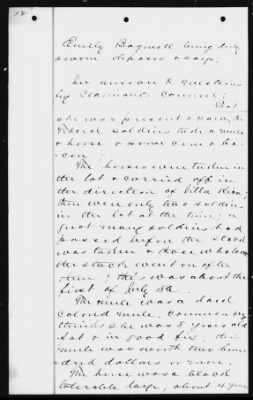 12
Emily Bagwell being duly
sworn deposes & says.
In answer to questions
by Claimants Counsel;
That
she was present & saw the
Federal soldiers take a mule
& horse & some corn & ba-
con.
The horses were taken in
the lot & carried off in
the direction of Villa Rica,
there were only two soldiers
in the lot at the time; a
great many soldiers had
passed before the stock
was taken & those who took
the stock went on after
them; this was about the
first of July 1864.
The mule was a
colored mule, common size
thinks she was 8 years old
fat & in good fix; this
mule was worth two hun-
dred dollars or more.
The horse was a blood
tolerable large, about 4 year